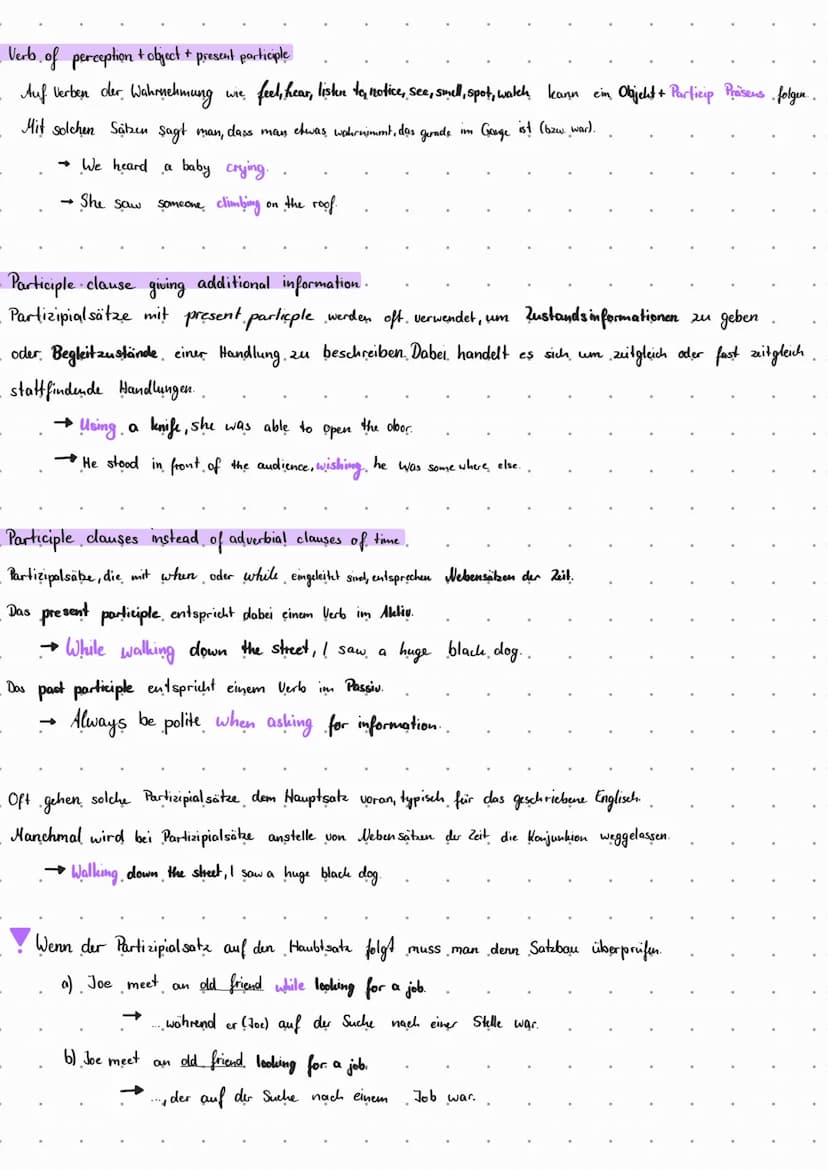 Verb of perception + object + present participle
Auf Verben der Wahrnehmung wie feel, hear, listen to, notice, see, smell, spot, watch kann ein Objekt + Particip Präsens folgen.
Mit solchen Sätzen sagt man, dass man etwas wahrnimmt, das gerade im Gange ist (bzw war).
→ We heard a baby crying.
→ She saw someone climbing on the roof.
Participle clause giving additional information
Partizipialsätze mit present participle werden oft verwendet, um Zustandsinformationen zu geben
oder Begleitzustände einer Handlung zu beschreiben. Dabei handelt es sich um zeitgleich oder fast zeitgleich
stattfindende Handlungen.
→ Using a knife, she was able to open the door.
→ He stood in front of the audience, wishing he was somewhere else.
Participle clauses instead of adverbial clauses of time
Partizipalsätze, die mit when oder while eingeleitet sind, entsprechen Nebensätzen der Zeit.
Das present participle entspricht dabei einem Verb im Aktiv.
→ While walking down the street, I saw a huge black dog.
Das past participle entspricht einem Verb im Passiv.
→ Always be polite when asking for information.
Oft gehen solche Partizipialsätze dem Hauptsatz voran, typisch für das geschriebene Englisch.
Manchmal wird bei Partizipialsätze anstelle von Nebensätzen der Zeit die Konjunktion weggelassen.
→ Walking down the street, I saw a huge black dog.
Wenn der Partizipialsatz auf den Haubtsatz folgt muss man denn Satzbau überprüfen.
a) Joe meet an old friend while looking for a job.
→ ...während er (Joe) auf der Suche nach einer Stelle war.
b) Joe meet an old friend looking for a job.
→ ..., der auf der Suche nach einem Job war.